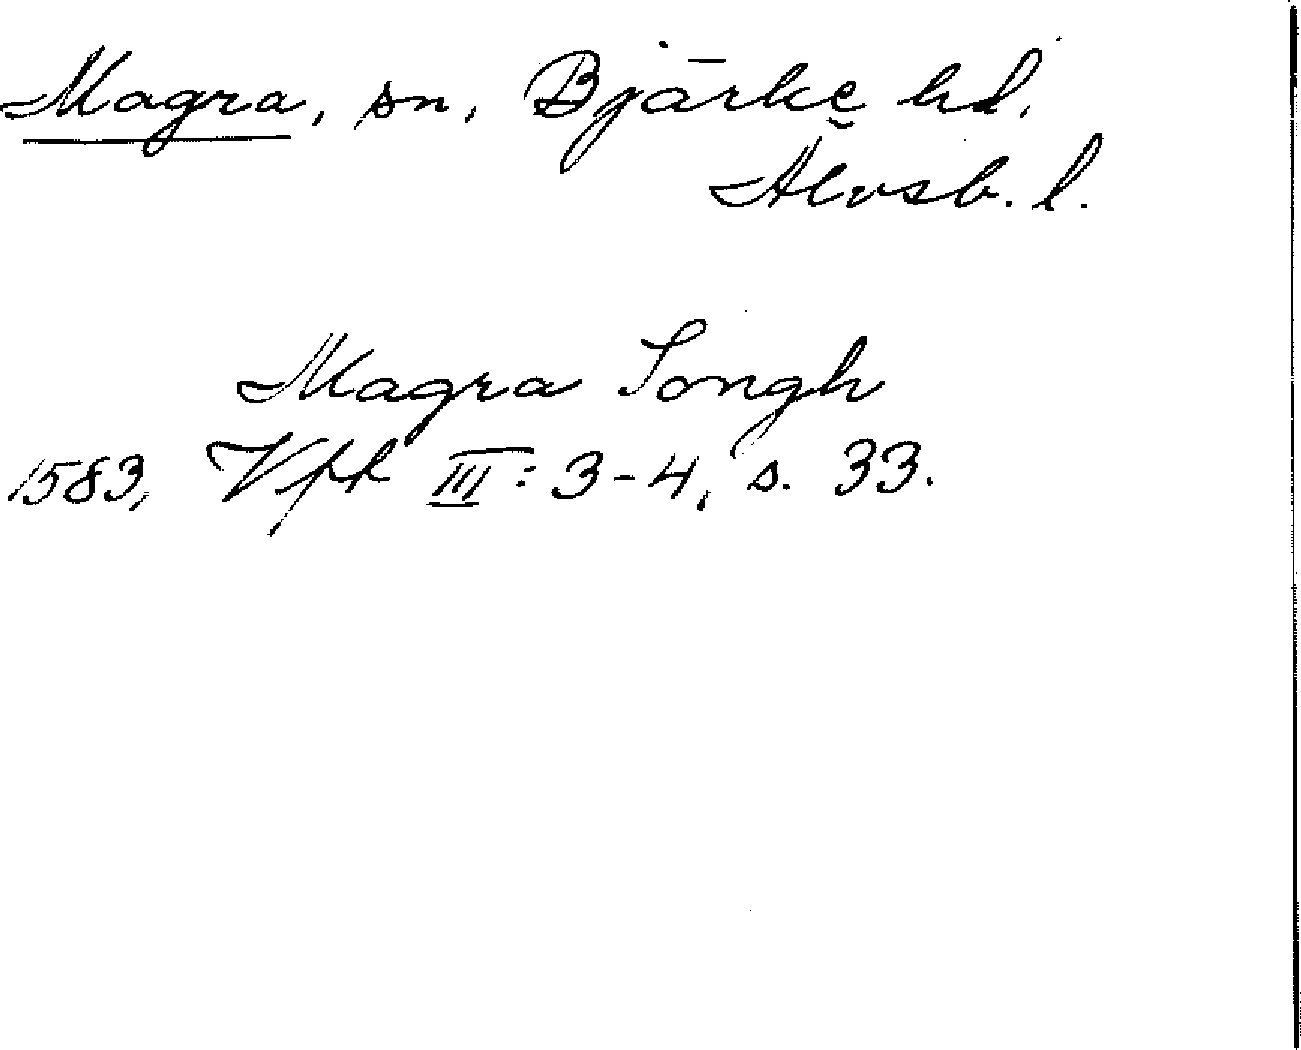 Magra, sn, Bjärke hd.
Älvsb. l.
Magra Songh
1583, Vft III: 3-4, s. 33.